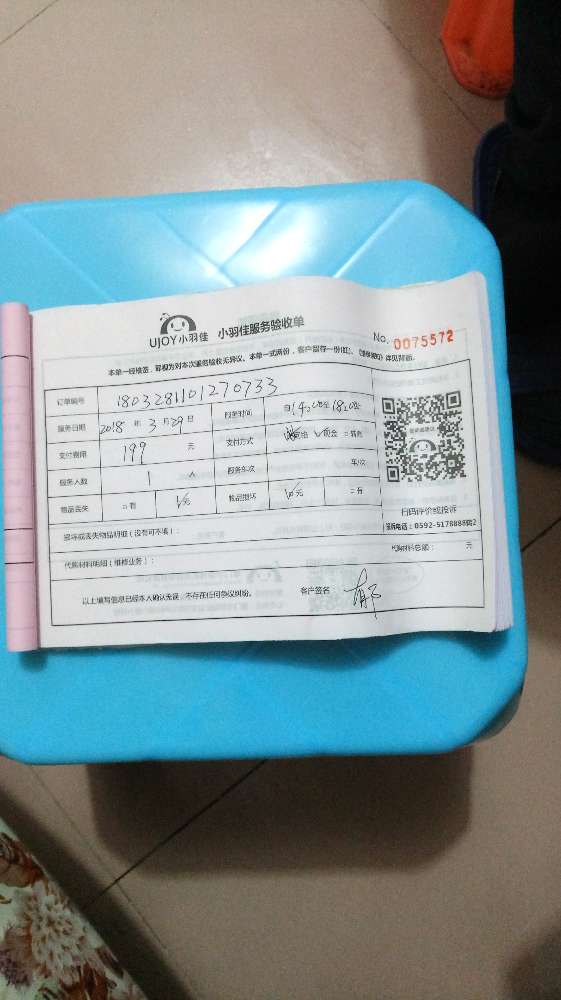 UJOY小羽佳 小羽佳服务验收单
No. 0075572
本单一经签签，即视为对本次服务验收无异议。本单一式两份，客户留存一份(红)。详见背面。
订单编号 1803281101270733
服务日期 2018 年 3 月 29 日 服务时间
支付费用 199 元 支付方式 √现金 □转账
服务人数 1 人 服务车次 车/次
物品丢失 □有 √无 物品损坏 √无 □有
扫码评价或投诉
损坏或丢失物品明细（没有可不填）：
代购材料明细（维修业务）： 代购材料总额： 元
以上填写信息已经本人确认无误，不存在任何争议纠纷。 客户签名